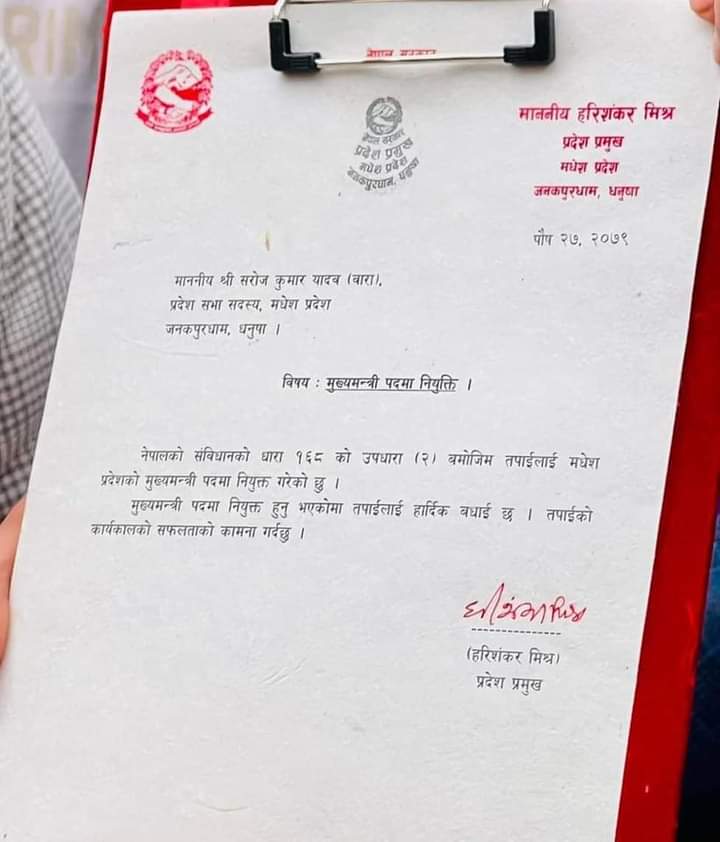 नेपाल सरकार
नेपाल सरकार
प्रदेश प्रमुख
मधेश प्रदेश
जनकपुरधाम, धनुषा
माननीय हरिशंकर मिश्र
प्रदेश प्रमुख
मधेश प्रदेश
जनकपुरधाम, धनुषा
पौष २७, २०७९
माननीय श्री सरोज कुमार यादव (बारा),
प्रदेश सभा सदस्य, मधेश प्रदेश
जनकपुरधाम, धनुषा ।
विषय : मुख्यमन्त्री पदमा नियुक्ति ।
नेपालको संविधानको धारा १६८ को उपधारा (२) बमोजिम तपाईलाई मधेश
प्रदेशको मुख्यमन्त्री पदमा नियुक्त गरेको छु ।
मुख्यमन्त्री पदमा नियुक्त हुनु भएकोमा तपाईलाई हार्दिक बधाई छ । तपाईको
कार्यकालको सफलताको कामना गर्दछु ।
(हरिशंकर मिश्र)
प्रदेश प्रमुख